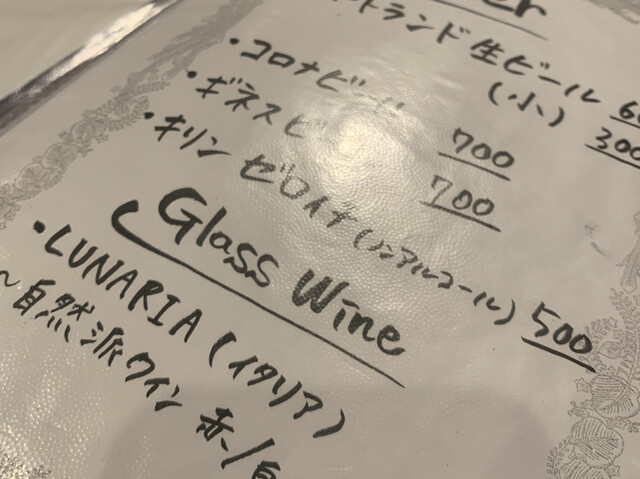 トランド生ビール
(小) 300
・コロナビール 700
・ギネスビ 700
・キリン ゼロイチ(ノンアルコール) 500
Glass Wine
・LUNARIA (イタリア)
～自然派ワイン 赤/